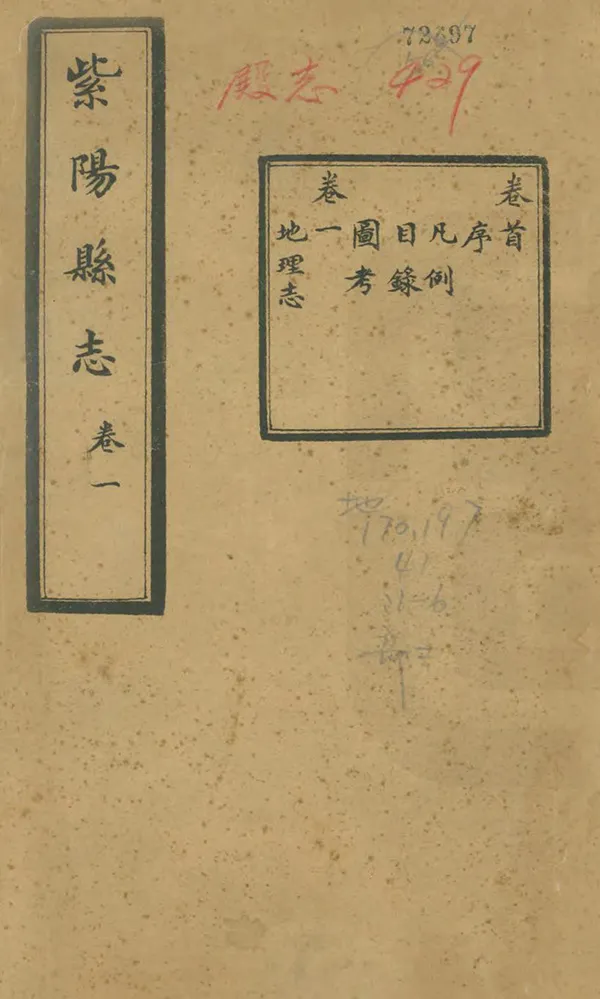 72697
殿志 429
紫陽縣志 卷一
卷首
序
凡例
目錄
圖考
卷一
地理志
地
170,197
41